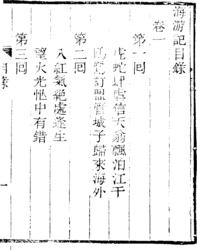 海游記目錄
卷一
第一回
信天翁飄泊江干
訂盟管城子歸來海外
第二回
入紅氣絕處逢生
望天光忙中有錯
第三回
目錄
一